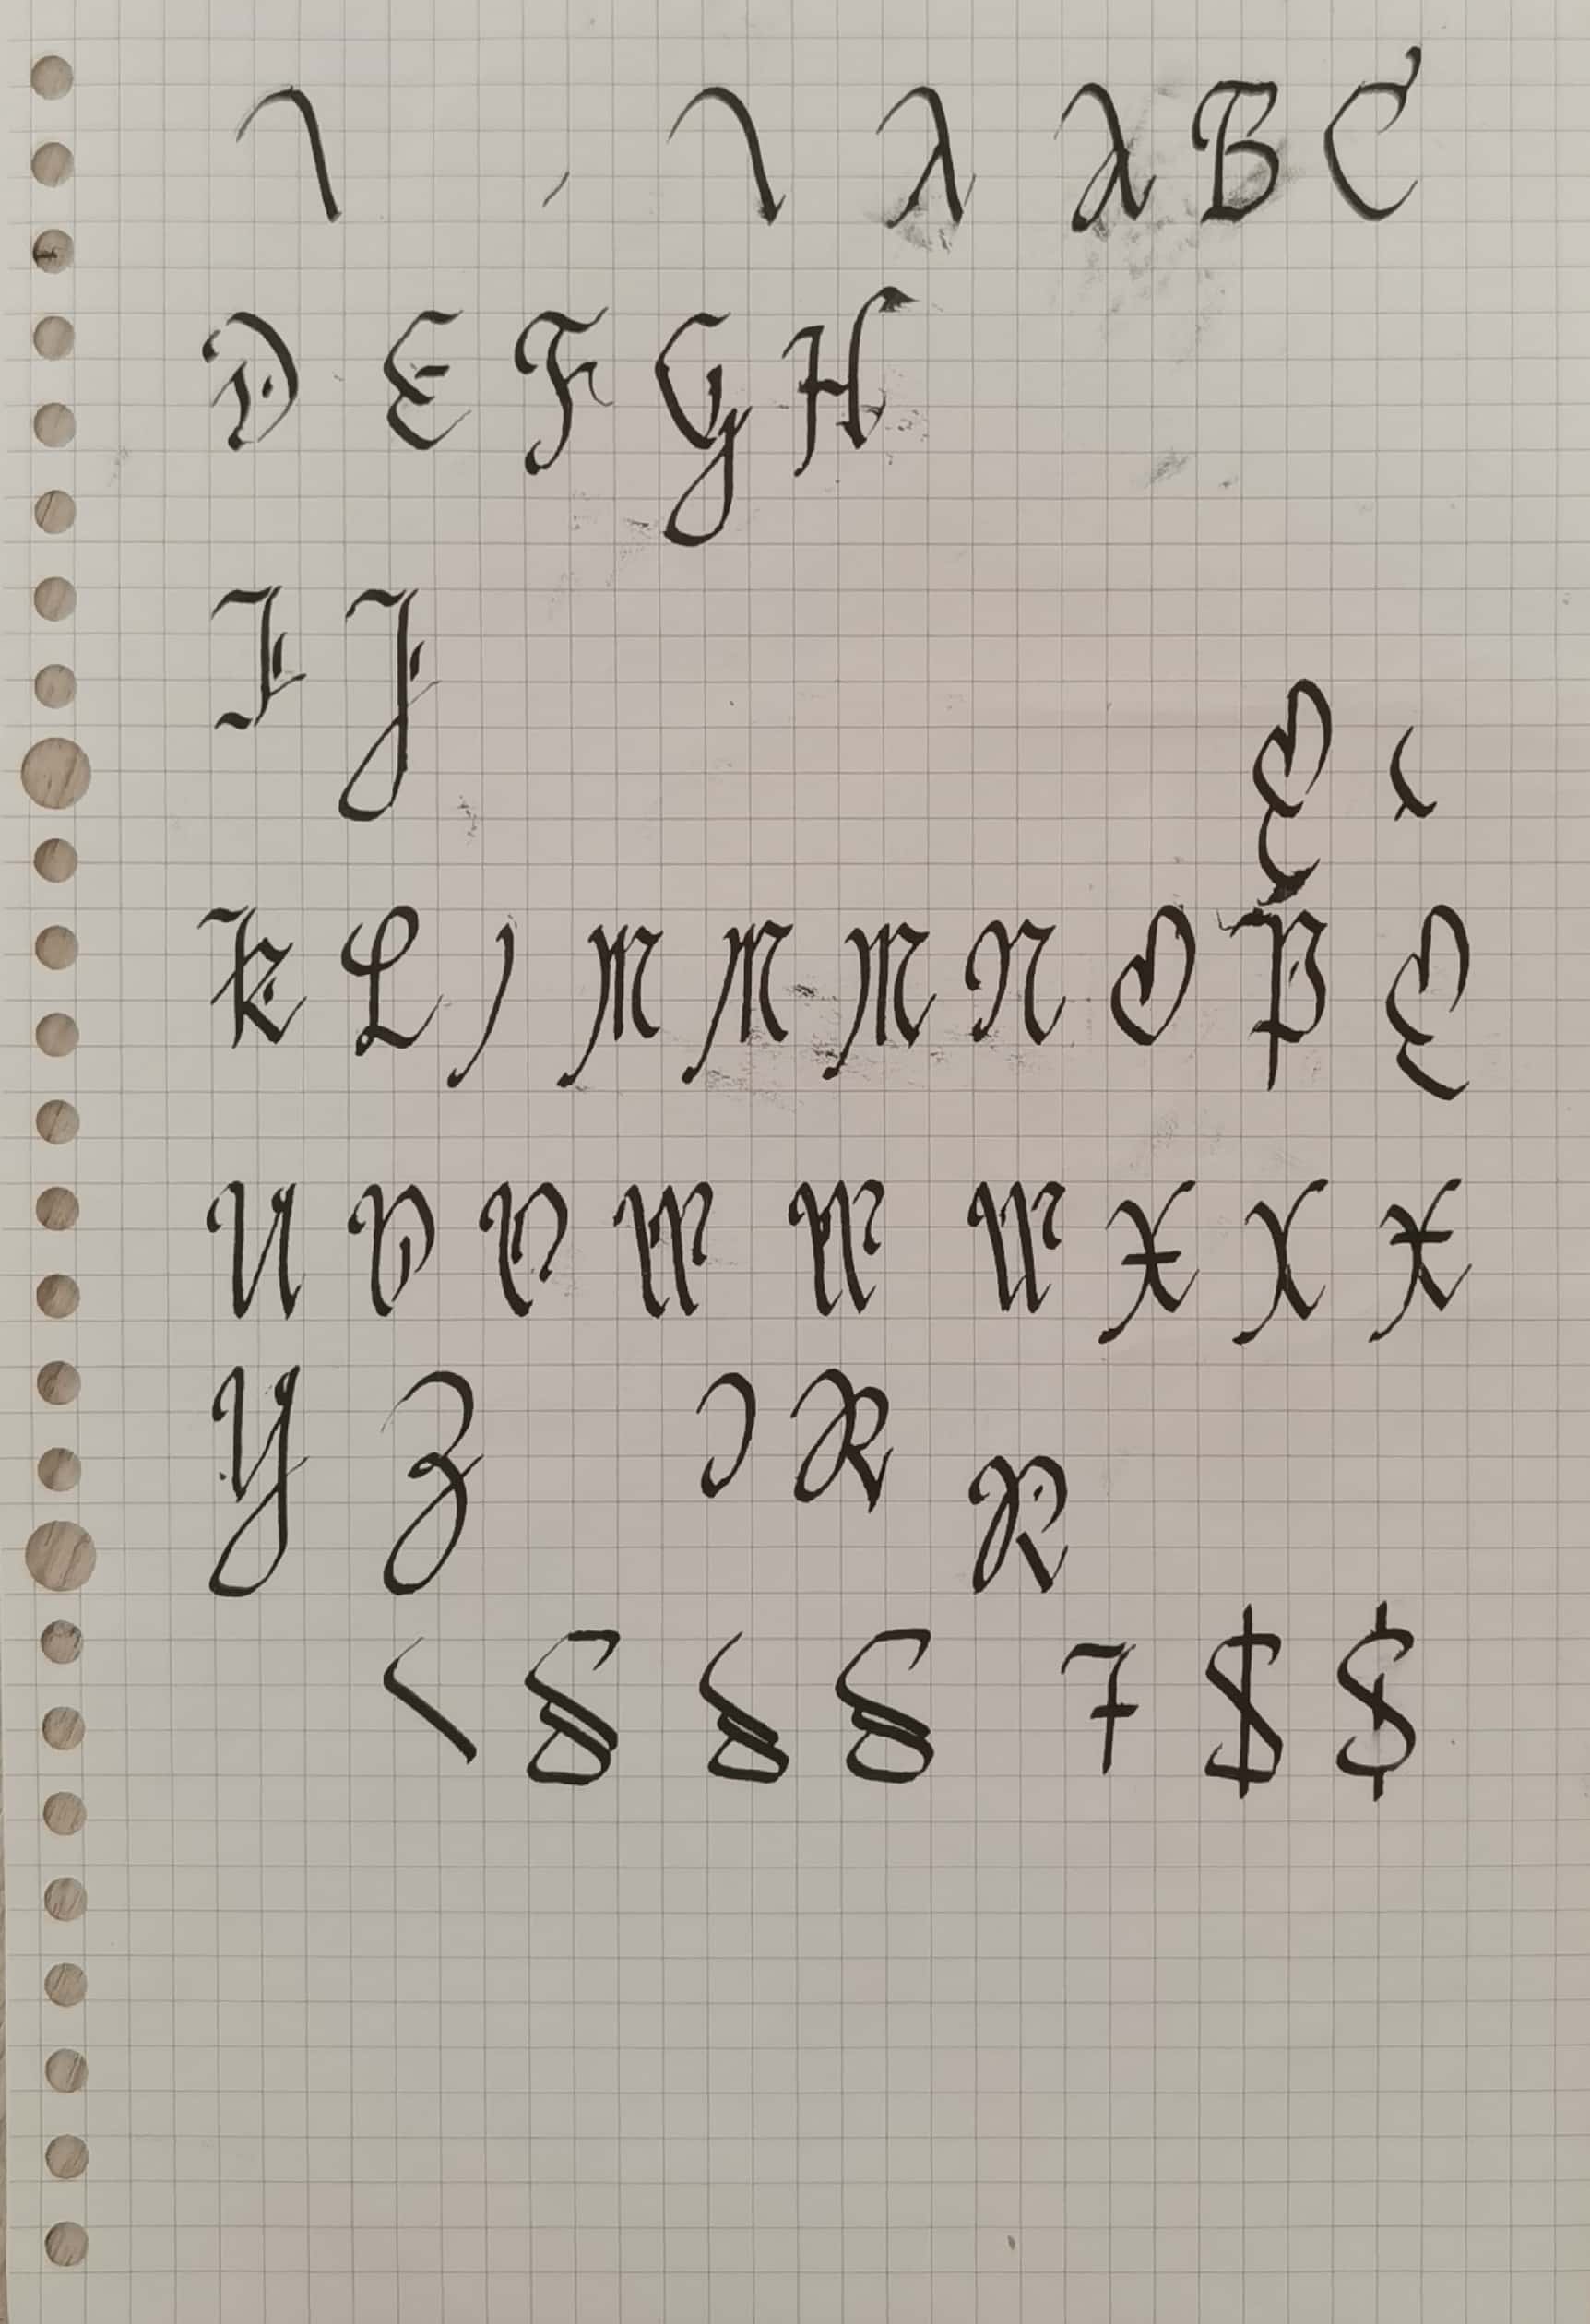 A A B C
D E F G H
I J
Q
K L M M M N O P Q
U V V W W W X X X
Y Z R R
S S S 7 $ $